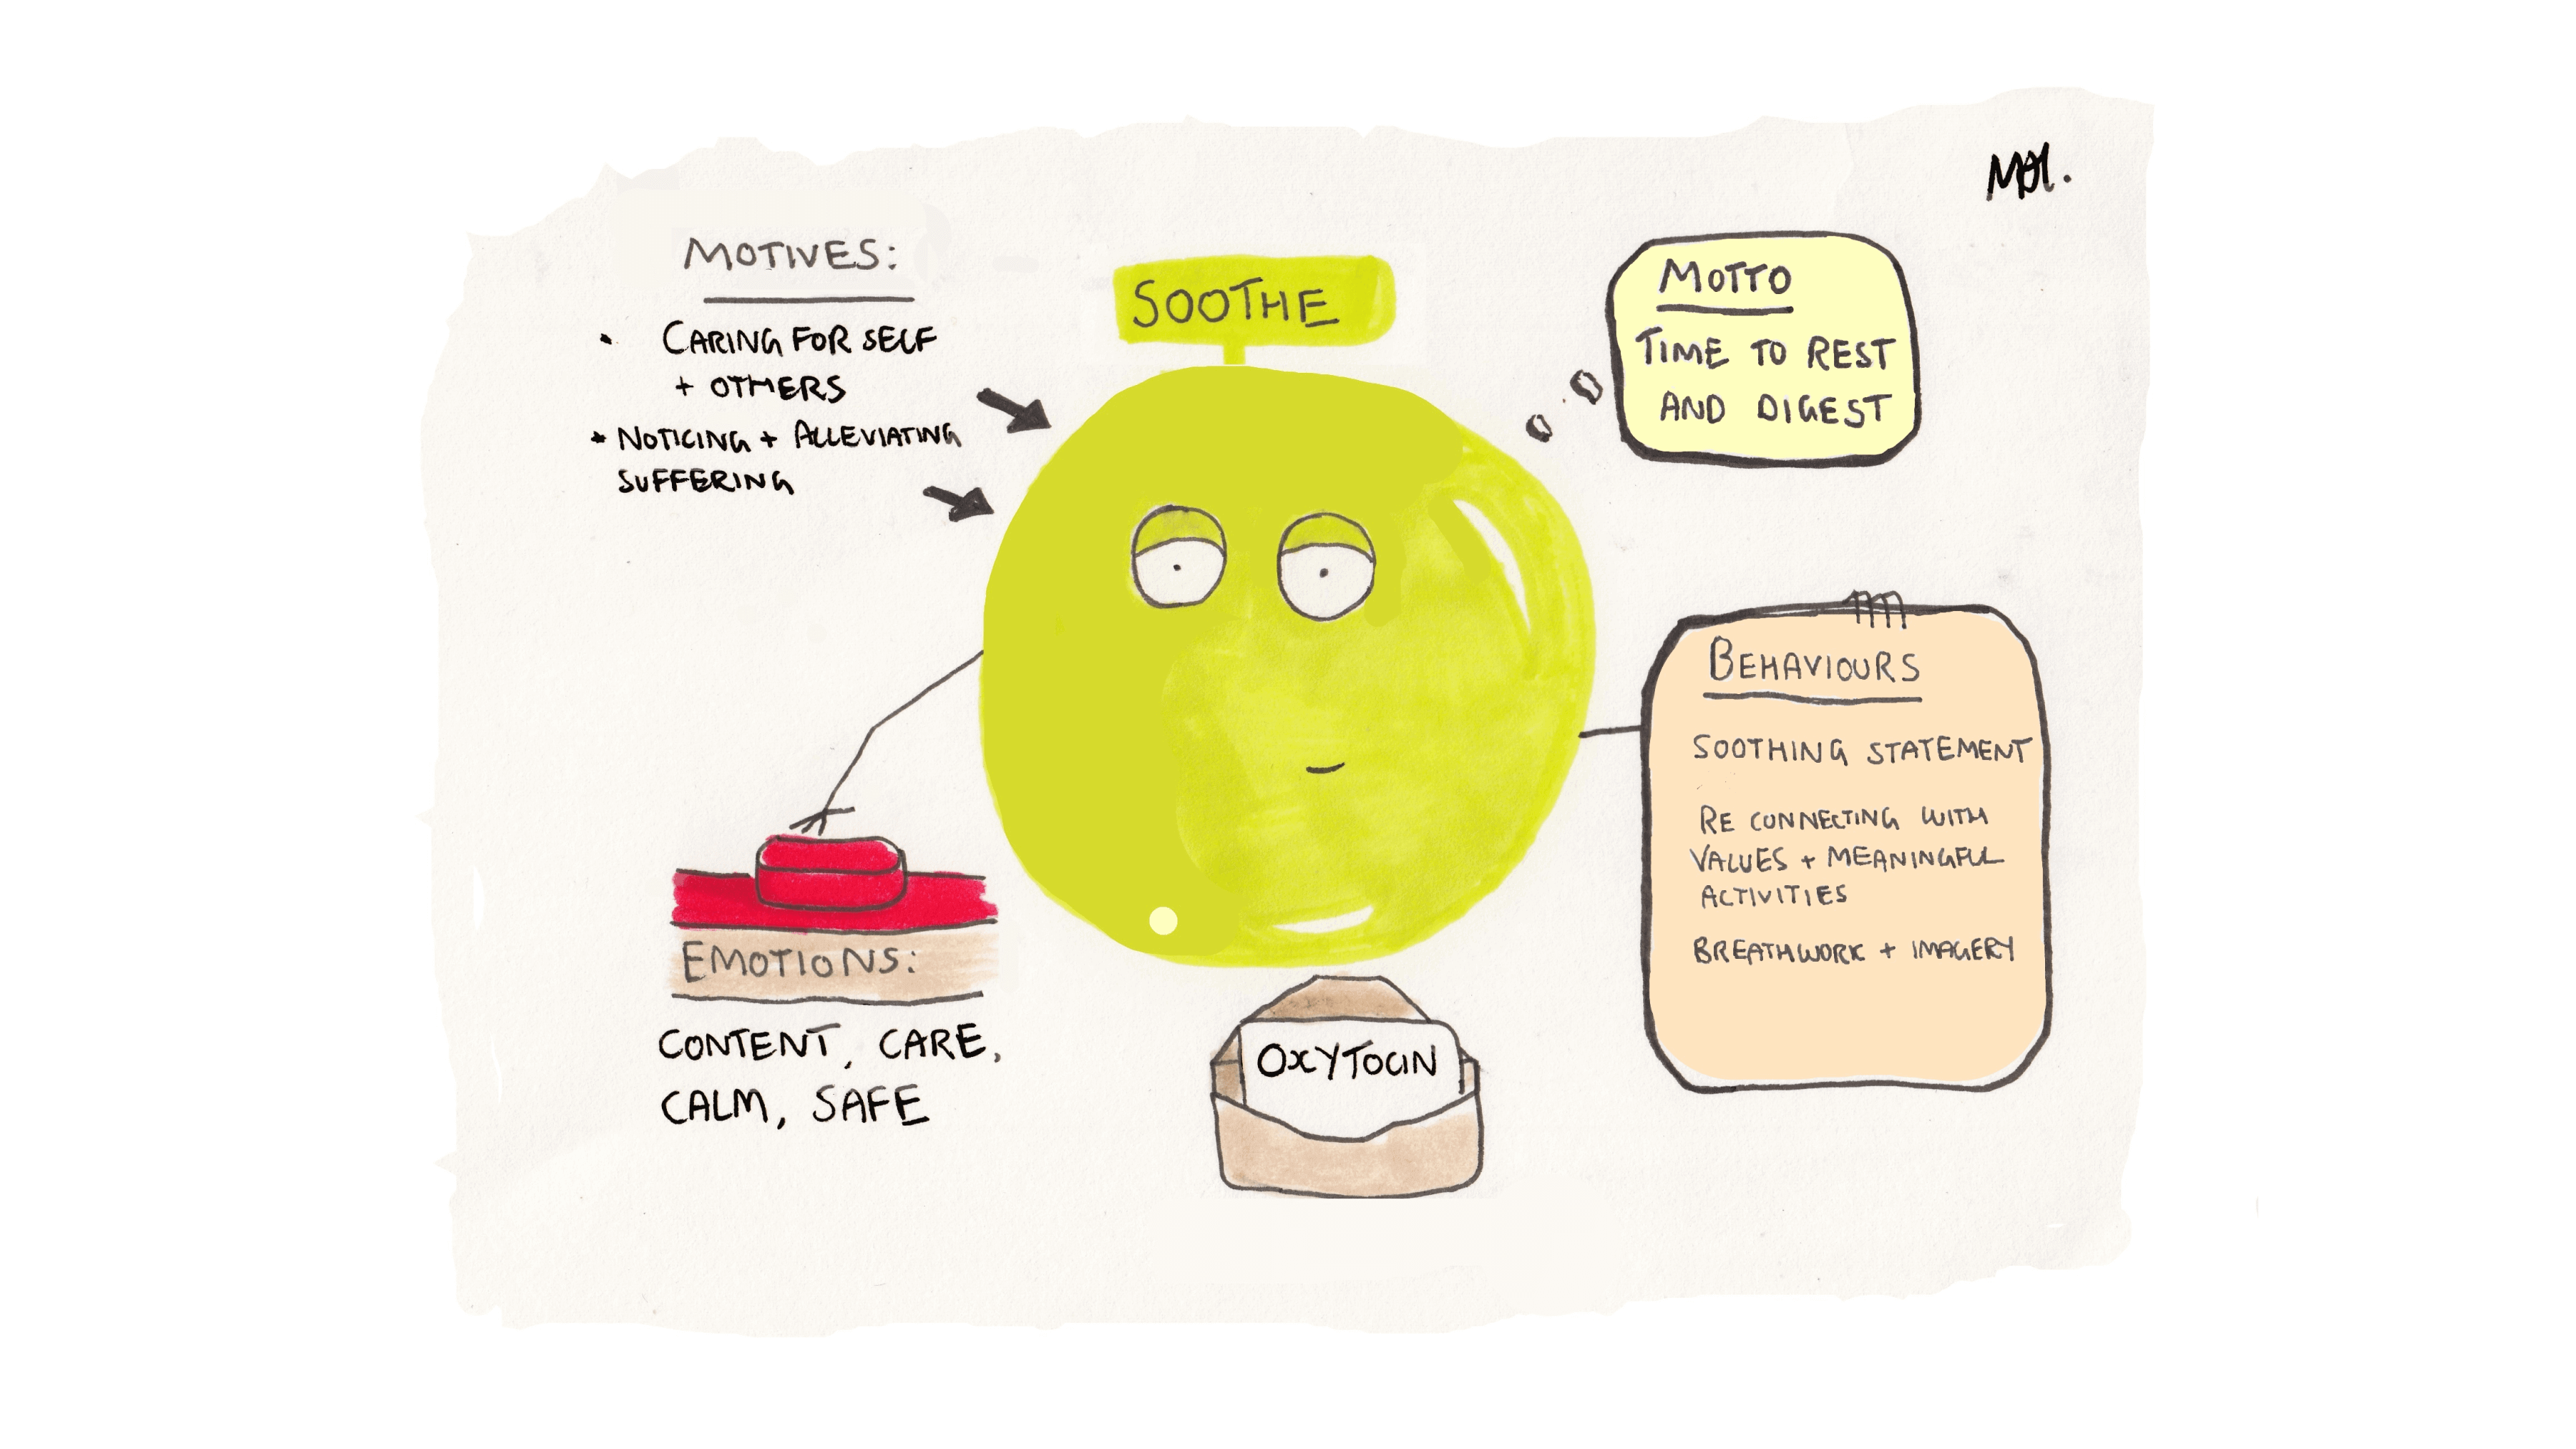 MOTIVES:
• CARING FOR SELF
+ OTHERS
• NOTICING + ALLEVIATING
SUFFERING
SOOTHE
MOTTO
TIME TO REST
AND DIGEST
BEHAVIOURS
SOOTHING STATEMENT
RE CONNECTING WITH
VALUES + MEANINGFUL
ACTIVITIES
BREATHWORK + IMAGERY
EMOTIONS:
CONTENT, CARE,
CALM, SAFE
OXYTOCIN